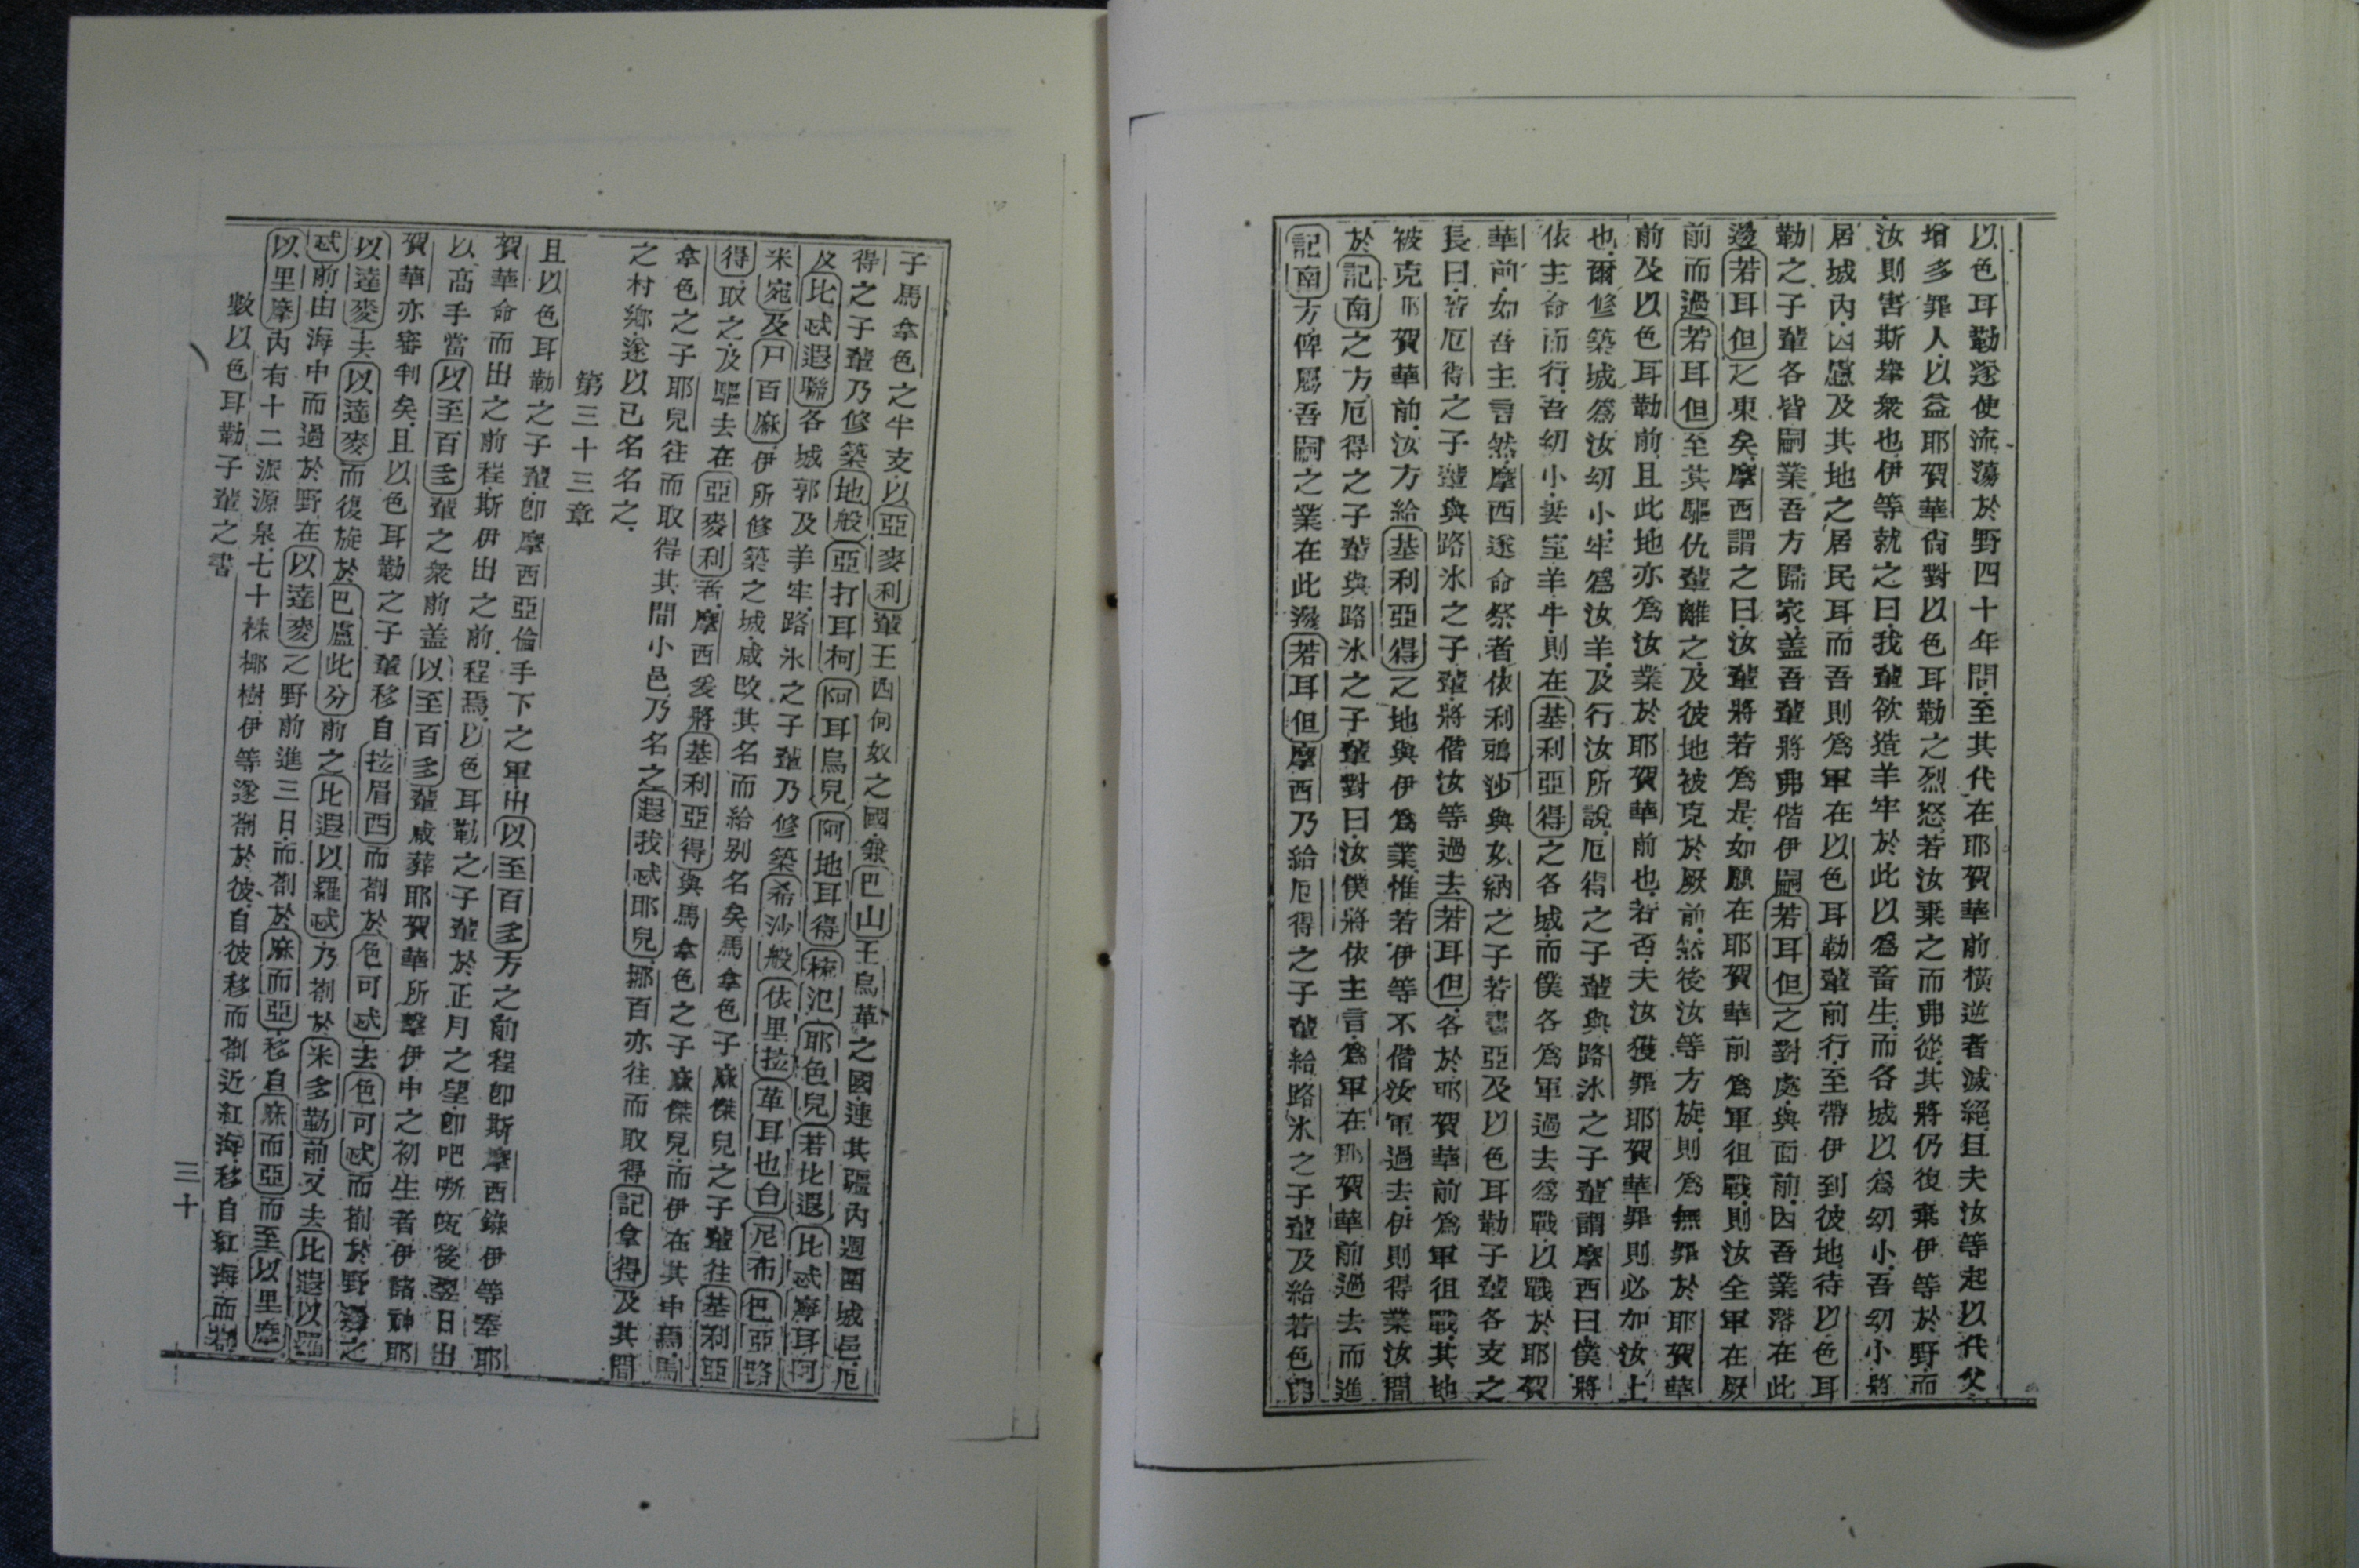 以色耳勒遂使流蕩於野四十年間至其代在耶賀華前橫逆者滅絕且夫汝等起以代父
增多罪人以益耶賀華尙對以色耳勒之烈怒若汝棄之而弗從其將仍復棄伊等於野而
汝則害斯舉衆也伊等就之曰我輩欲造羊牢於此以爲畜生而各城以爲幼小吾幼小將
居城內因慮及其地之居民耳而吾則爲軍在以色耳勒輩前行至帶伊到彼地待以色耳
勒之子輩各皆嗣業吾方歸家盖吾輩將弗偕伊嗣若耳但之對處與面前因吾業落在此
邊若耳但之東矣摩西謂之曰汝輩將若爲是如願在耶賀華前爲軍徂戰則汝全軍在厥
前而過若耳但至其驅仇輩離之及彼地被克於厥前然後汝等方旋則爲無罪於耶賀華
前及以色耳勒前且此地亦爲汝業於耶賀華前也若否夫汝獲罪耶賀華罪則必加汝上
也爾修築城爲汝幼小牢爲汝羊及行汝所說厄得之子輩與路氷之子輩謂摩西曰僕將
依主命而行吾幼小妻室羊牛則在基利亞得之各城而僕各爲軍過去爲戰以戰於耶賀
華前如吾主言然摩西遂命祭者依利鴉沙與女納之子若書亞及以色耳勒子輩各支之
長曰若厄得之子輩與路氷之子輩將偕汝等過去若耳但各於耶賀華前爲軍徂戰其地
被克耶賀華前汝方給基利亞得之地與伊爲業惟若伊等不偕汝軍過去伊則得業汝間
於記南之方厄得之子輩與路氷之子輩對曰汝僕將依主言爲軍在耶賀華前過去而進
記南方俾屬吾嗣之業在此邊若耳但摩西乃給厄得之子輩給路氷之子輩及給若色弗
子馬拿色之半支以亞麥利輩王西何奴之國兼巴山王烏革之國連其疆內週圍城邑厄
得之子輩乃修築地般亞打耳柯阿耳烏兒阿地耳得梳氾耶色兒若比遐比忒摩耳阿
及比忒遐聯各城郭及羊牢路氷之子輩乃修築希沙般依里拉革耳也台尼布巴亞路
米宛及尸百麻伊所修築之城咸改其名而給別名矣馬拿色子麻傑兒之子輩往基利亞
得取之及驅去在亞麥利者摩西爰將基利亞得與馬拿色之子麻傑兒而伊在其中焉馬
拿色之子耶兒往而取得其間小邑乃名之遐我忒耶兒挪百亦往而取得記拿得及其間
之村鄉遂以已名名之
第三十三章
且以色耳勒之子輩卽摩西亞倫手下之軍出以至百多方之前程卽斯摩西錄伊等奉耶
賀華命而出之前程斯伊出之前程焉以色耳勒之子輩於正月之望卽吧㖕吰後翌日出
以高手當以至百多輩之衆前盖以至百多輩咸葬耶賀華所擊伊中之初生者伊諸神耶
賀華亦審判矣且以色耳勒之子輩移自拉眉西而劄於色可忒去色可忒而劄於野邊之
以達麥夫以達麥而復旋於巴盧此分前之比遐以羅忒乃劄於米多勒前又去比遐以羅
忒前由海中而過於野在以達麥之野前進三日而劄於麻而亞移自麻而亞而至以里摩
以里摩內有十二派源泉七十株椰樹伊等遂劄於彼自彼移而劄近紅海移自紅海而劄
數以色耳勒子輩之書
三十